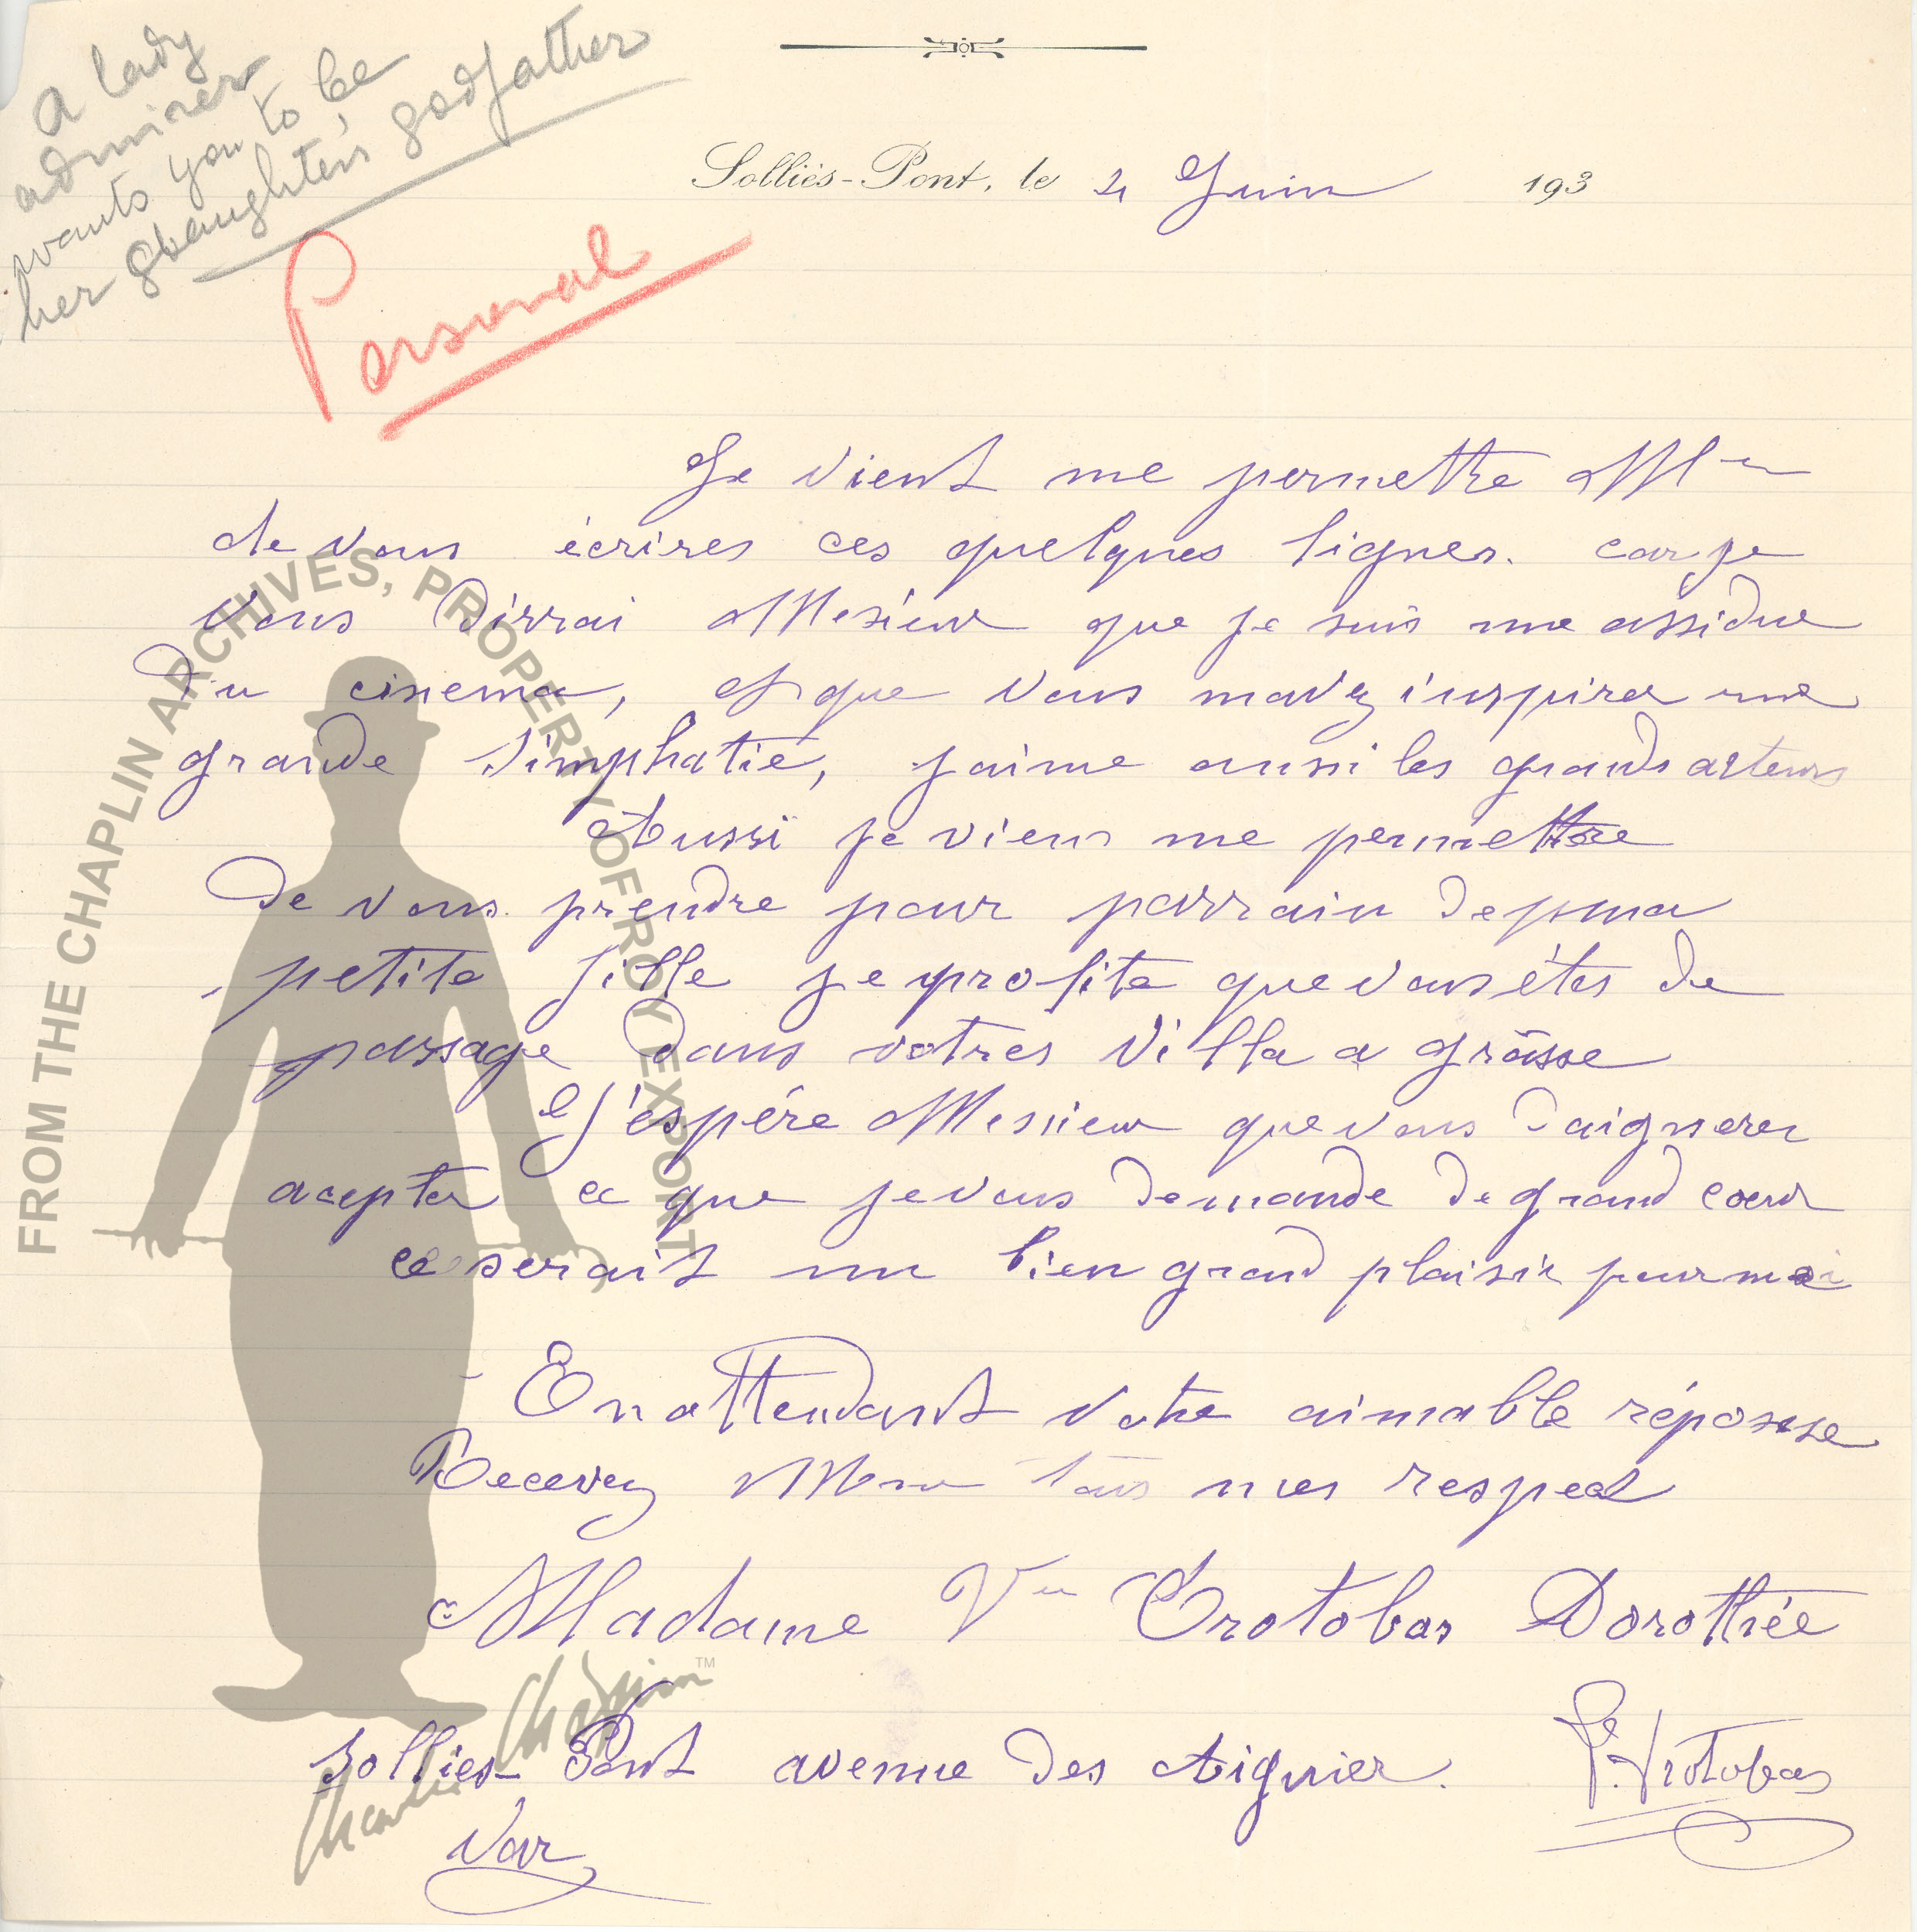 a lady
admirer
wants you to be
her gdaughter's godfather
Personal
Solliès-Pont, le 4 Juin 193
Je vient me permettre Mr
de vous écrires ces quelques lignes. car je
vous dirrai Mesieur que je suis une assidue
du cinema, et que vous mavez inspirer une
grande simphatie, jaime aussi les grands acteurs
Aussi je viens me permettre
de vous prendre pour parrain de ma
petite fille je profite que vous êtes de
passage dans votres villa a grâsse
J'espére Messieur que vous daignerer
acepter ce que je vous demande de grand coeur
ce serait un bien grand plaisir pour moi
En attendant votre aimable réponse
Recevez Mr tous mes respect
Madame Vve Trotobas Dorothée
Sollies-Pont avenue des Aiguier.
Var
Trotobas
FROM THE CHAPLIN ARCHIVES, PROPERTY OF ROY EXPORT
Charlie Chaplin TM